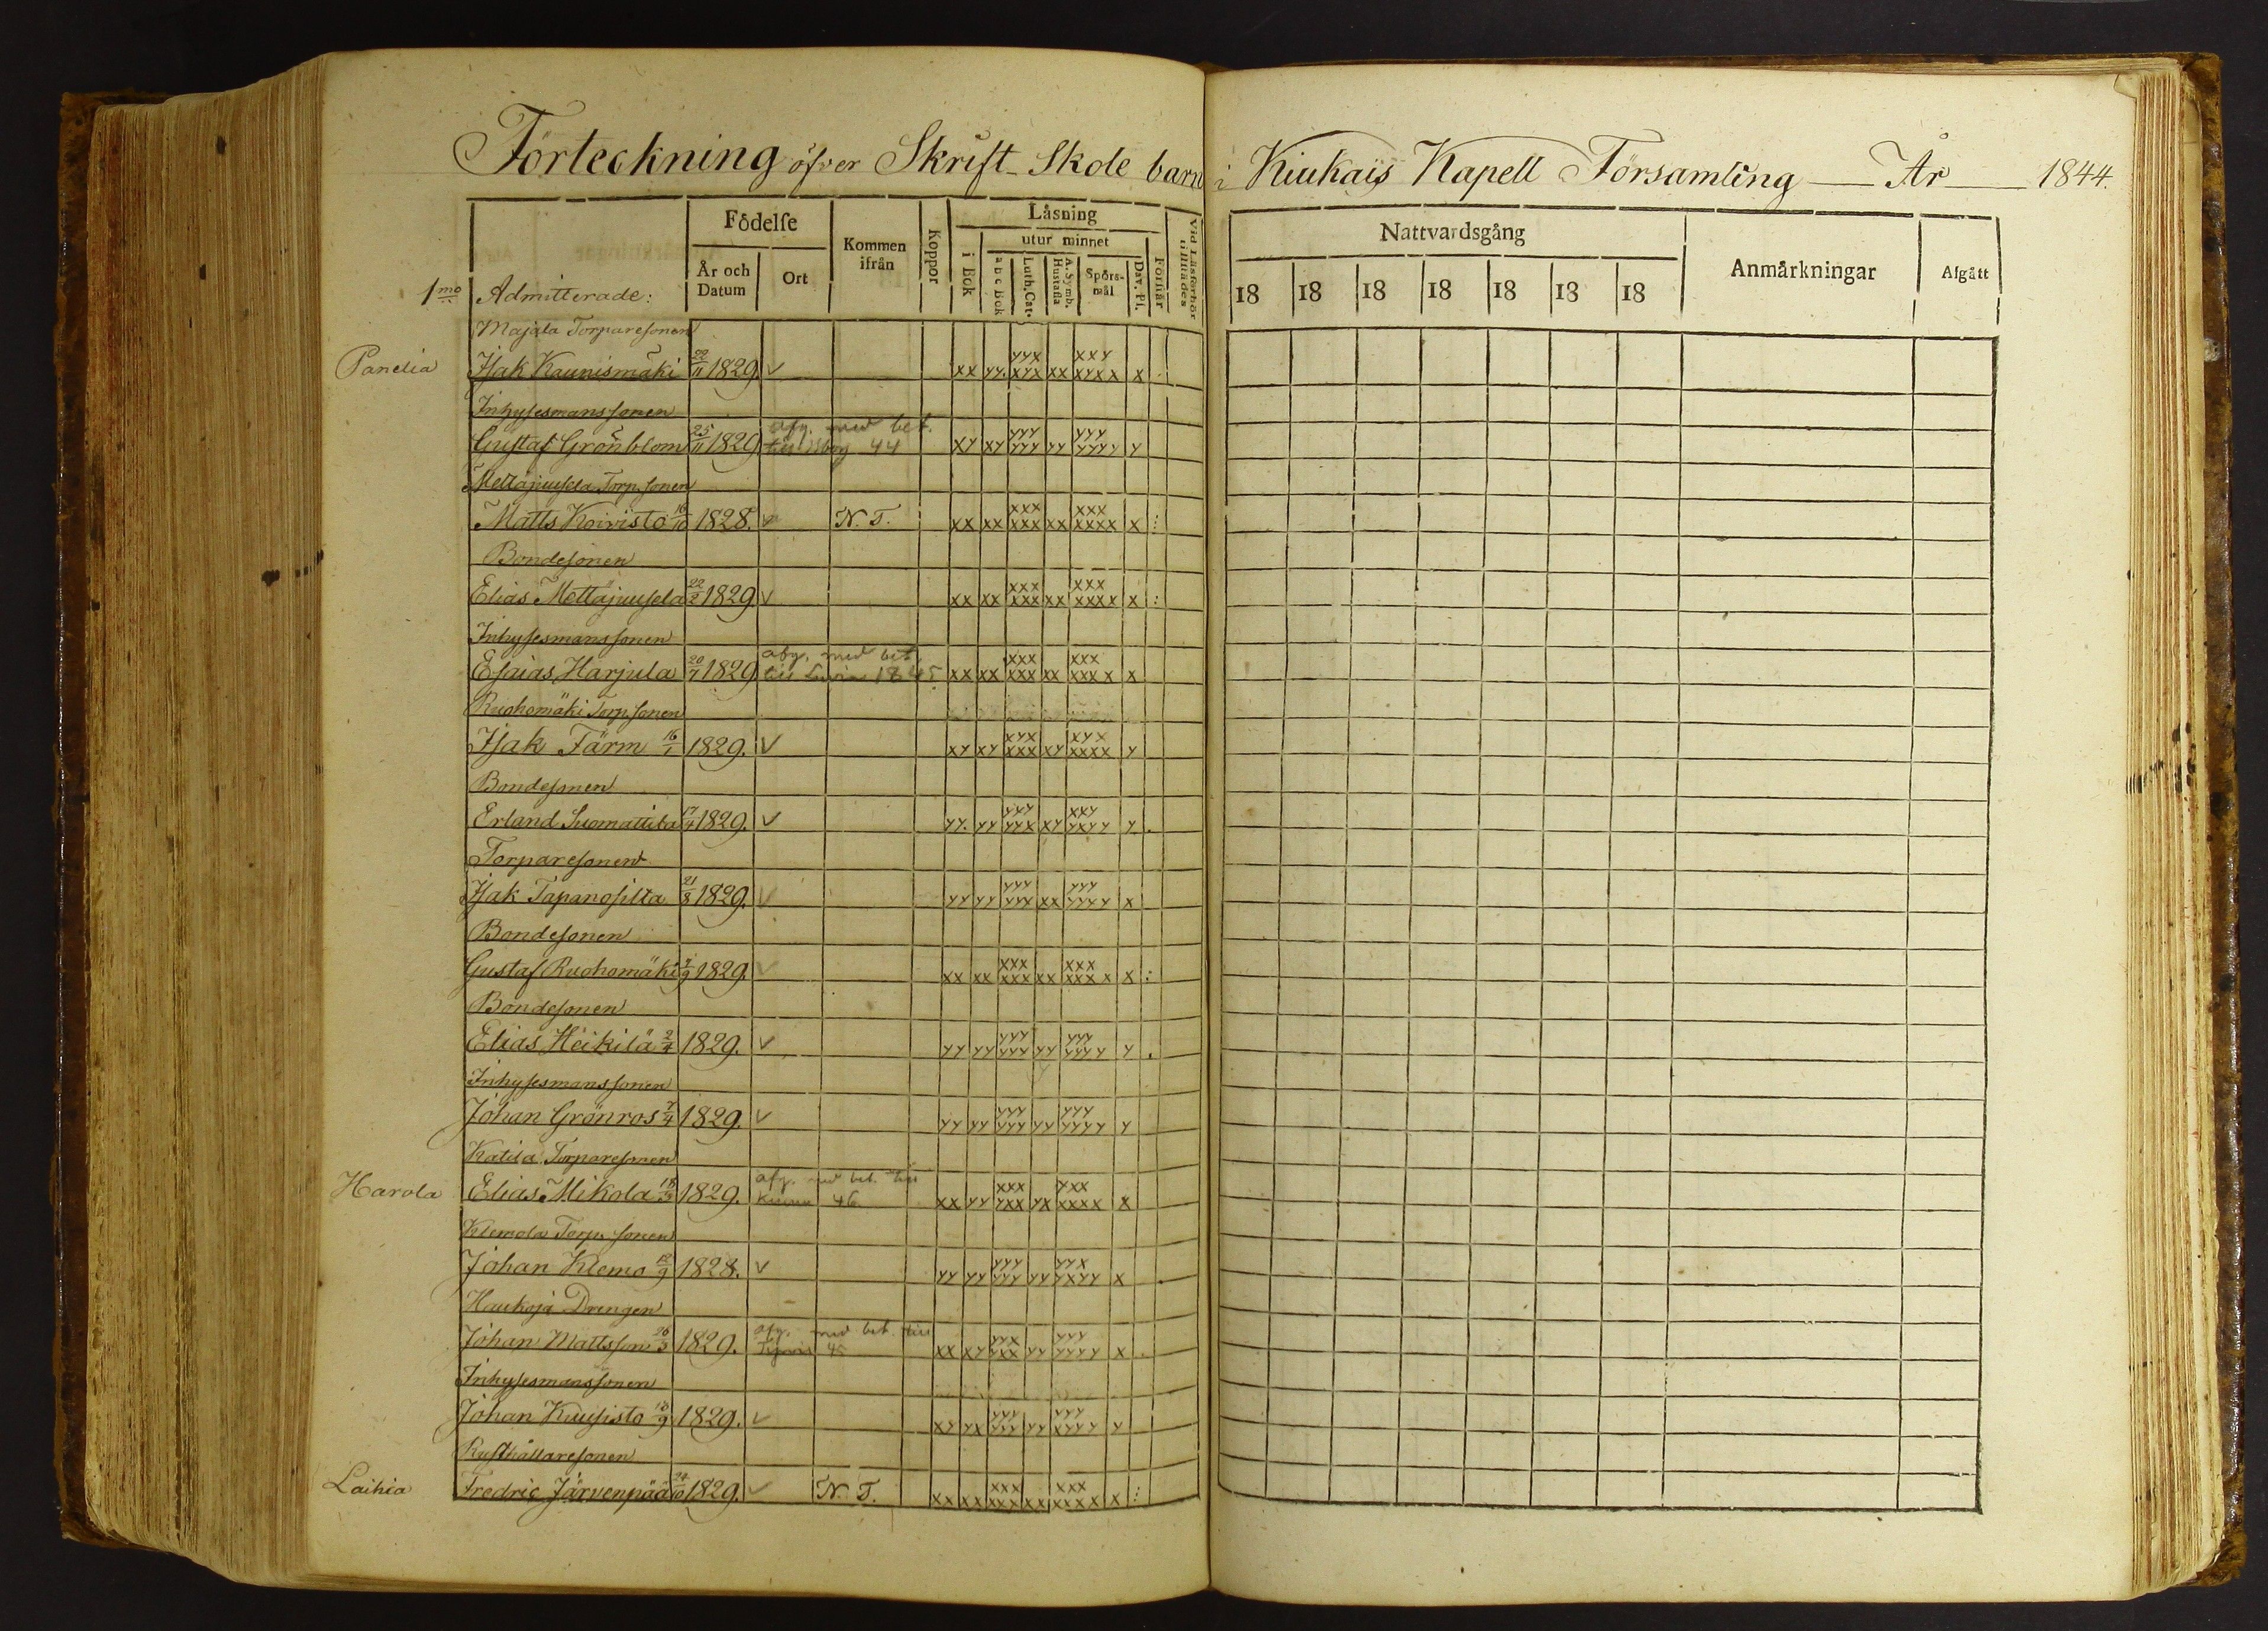 Förteckning öfver Skrift-Skole barn i Kiukais Kapell Församling — År — 1844.
Födelse
Kommen ifrån
Koppor
Läsning
Vid Läsförhör tillstädes
Nattvardsgång
Anmärkningar
Afgått
År och Datum
Ort
i Bok
utur minnet
a b c Bok
Luth. Cat.
A. Symb. Hustafla
Spörsmål
Dav. Ps.
Förstår
18 18 18 18 18 18 18
1mo Admitterade:
Majala Torparesonen
Panelia Isak Kaunismäki 22/11 1829. v xx yy. yyx xyx xx xxy xyxx x
Inhysesmanssonen
Gustaf Grönblom 25/11 1829 afg. med bet. 44 xy xy yyy yyy yy yyy yyyy y
Mettäjuusela Torp. sonen
Matts Koivisto 16/10 1828. v N. T. xx xx xxx xxx xx xxx xxxx x :
Bondesonen
Elias Mettäjuusela 22/2 1829 v xx xx xxx xxx xx xxx xxxx x :
Inhysesmanssonen
Esaias Harjula 20/7 1829 afg. med bet till Luvia 1845 xx xx xxx xxx xx xxx xxxx x
Ruohomäki Torp sonen
Isak Färm 16/1 1829. v xy xy xyx xxx xy xyx xxxx y
Bondesonen
Erland Suomattila 17/4 1829. v yy. yy yyy yyx xy xxy yxyy y .
Torparesonen
Isak Tapanosilta 21/8 1829. v yy yy yyy yyx xx yyy yyyy x
Bondesonen
Gustaf Ruohomäki 1829. v xx xx xxx xxx xx xxx xxxx x :
Bondesonen
Elias Heikilä 2/4 1829. v yy yy yyy yyy yy yyy yyyy y .
Inhysesmanssonen
Johan Grönros 7/4 1829. v yy yy yyy yyy yy yyy yyyy y
Katila Torparesonen
Harola Elias Mikola 1829. afg. med bet. till 46 xx yy xxx yxx yx yxx xxxx x
Klemola Torp. sonen
Johan Klemo 12/9 1828. v yy yy yyy yyy yy yyx yxyy x .
Haukoja Drengen
Johan Mattsson 26/3 1829. afg. med bet. till 45 xx xy yyx yxx yy yyy yyyy x .
Inhysesmanssonen
Johan Kuusisto 18/9 1829. v xy yx yyy yyy yy yyy xyyy y
Rusthållaresonen
Laihia Fredric Järvenpää 24/10 1829. v N. T. xx xx xxx xxx xx xxx xxxx x :